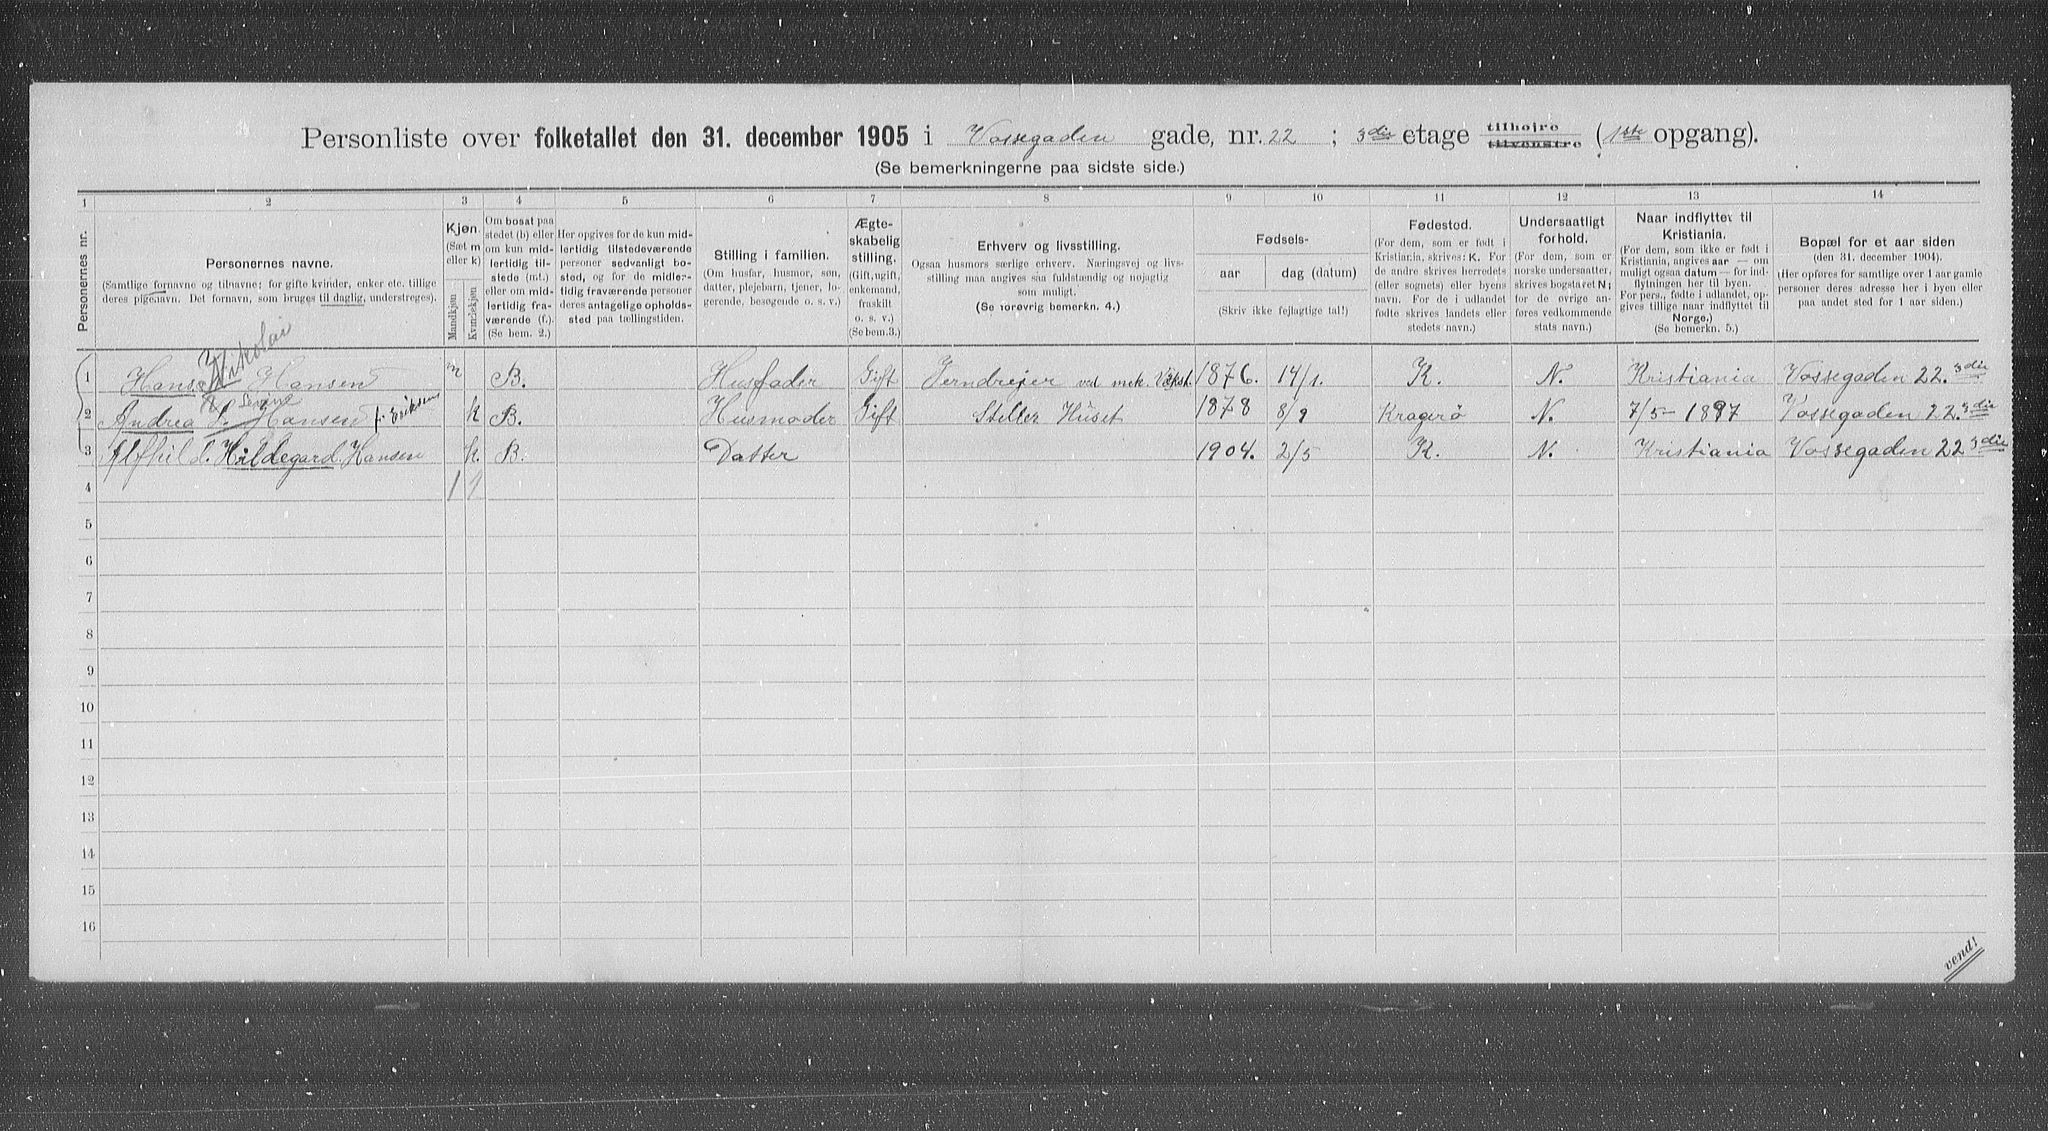 Personliste over folketallet den 31. december 1905 i Vossegaden gade, nr. 22 ; 3die etage tilhøire tilvenstre (1ste opgang).
(Se bemerkningerne paa sidste side.)
1 2 3 4 5 6 7 8 9 10 11 12 13 14
Personernes nr.
Personernes navne.
(Samtlige fornavne og tilnavne; for gifte kvinder, enker etc. tillige
deres pigenavn. Det fornavn, som bruges til daglig, understreges).
Kjøn.
(Sæt m
eller k)
Mandkjøn
Kvindekjøn
Om bosat paa
stedet (b) eller
om kun mid-
lertidig til-
stede (mt.)
eller om mid-
lertidig fra-
værende (f.).
(Se bem. 2.)
Her opgives for de kun mid-
lertidig tilstedeværende
personer sedvanligt bo-
sted, og for de midler-
tidig fraværende personer
deres antagelige opholds-
sted paa tællingstiden.
Stilling i familien.
(Om husfar, husmor, søn,
datter, plejebarn, tjener, lo-
gerende, besøgende o. s. v.)
Ægte-
skabelig
stilling.
(Gift, ugift,
enkemand,
fraskilt
o. s. v.)
(Se bem. 3.)
Erhverv og livsstilling.
Ogsaa husmors særlige erhverv. Næringsvej og livs-
stilling maa angives saa fuldstændig og nøjagtig
som muligt.
(Se forøvrig bemerkn. 4.)
Fødsels-
aar dag (datum)
(Skriv ikke fejlagtige tal!)
Fødested.
(For dem, som er født i
Kristiania, skrives: K. For
de andre skrives herredets
(eller sognets) eller byens
navn. For de i udlandet
fødte skrives landets eller
stedets navn.)
Undersaatligt
forhold.
(For dem, som er
norske undersaatter,
skrives bogstavet N;
for de øvrige an-
føres vedkommende
stats navn.)
Naar indflyttet til
Kristiania.
(For dem, som ikke er født i
Kristiania, angives aar — om
muligt ogsaa datum — for ind-
flytningen her til byen.
For pers., fødte i udlandet, op-
gives tillige naar indflyttet til
Norge.)
(Se bemerkn. 5.)
Bopæl for et aar siden
(den 31. december 1904).
(Her opføres for samtlige over 1 aar gamle
personer deres adresse her i byen eller
paa andet sted for 1 aar siden.)
Nikolai
1 Hans Hansen m B. Husfader Gift Jerndreier ved mek. Vækst. 1876. 14/1. K. N. Kristiania Vossegaden 22. 3die
Severine
2 Andrea S. Hansen f. Eriksen k B. Husmoder Gift Steller Huset 1878 8/9 Kragerö N. 7/5-1897 Vossegaden 22. 3die
3 Alfhild. Hildegard. Hansen k. B. Datter 1904. 2/5 K. N. Kristiania Vossegaden 22 3die
4
5
6
7
8
9
10
11
12
13
14
15
16
vend!